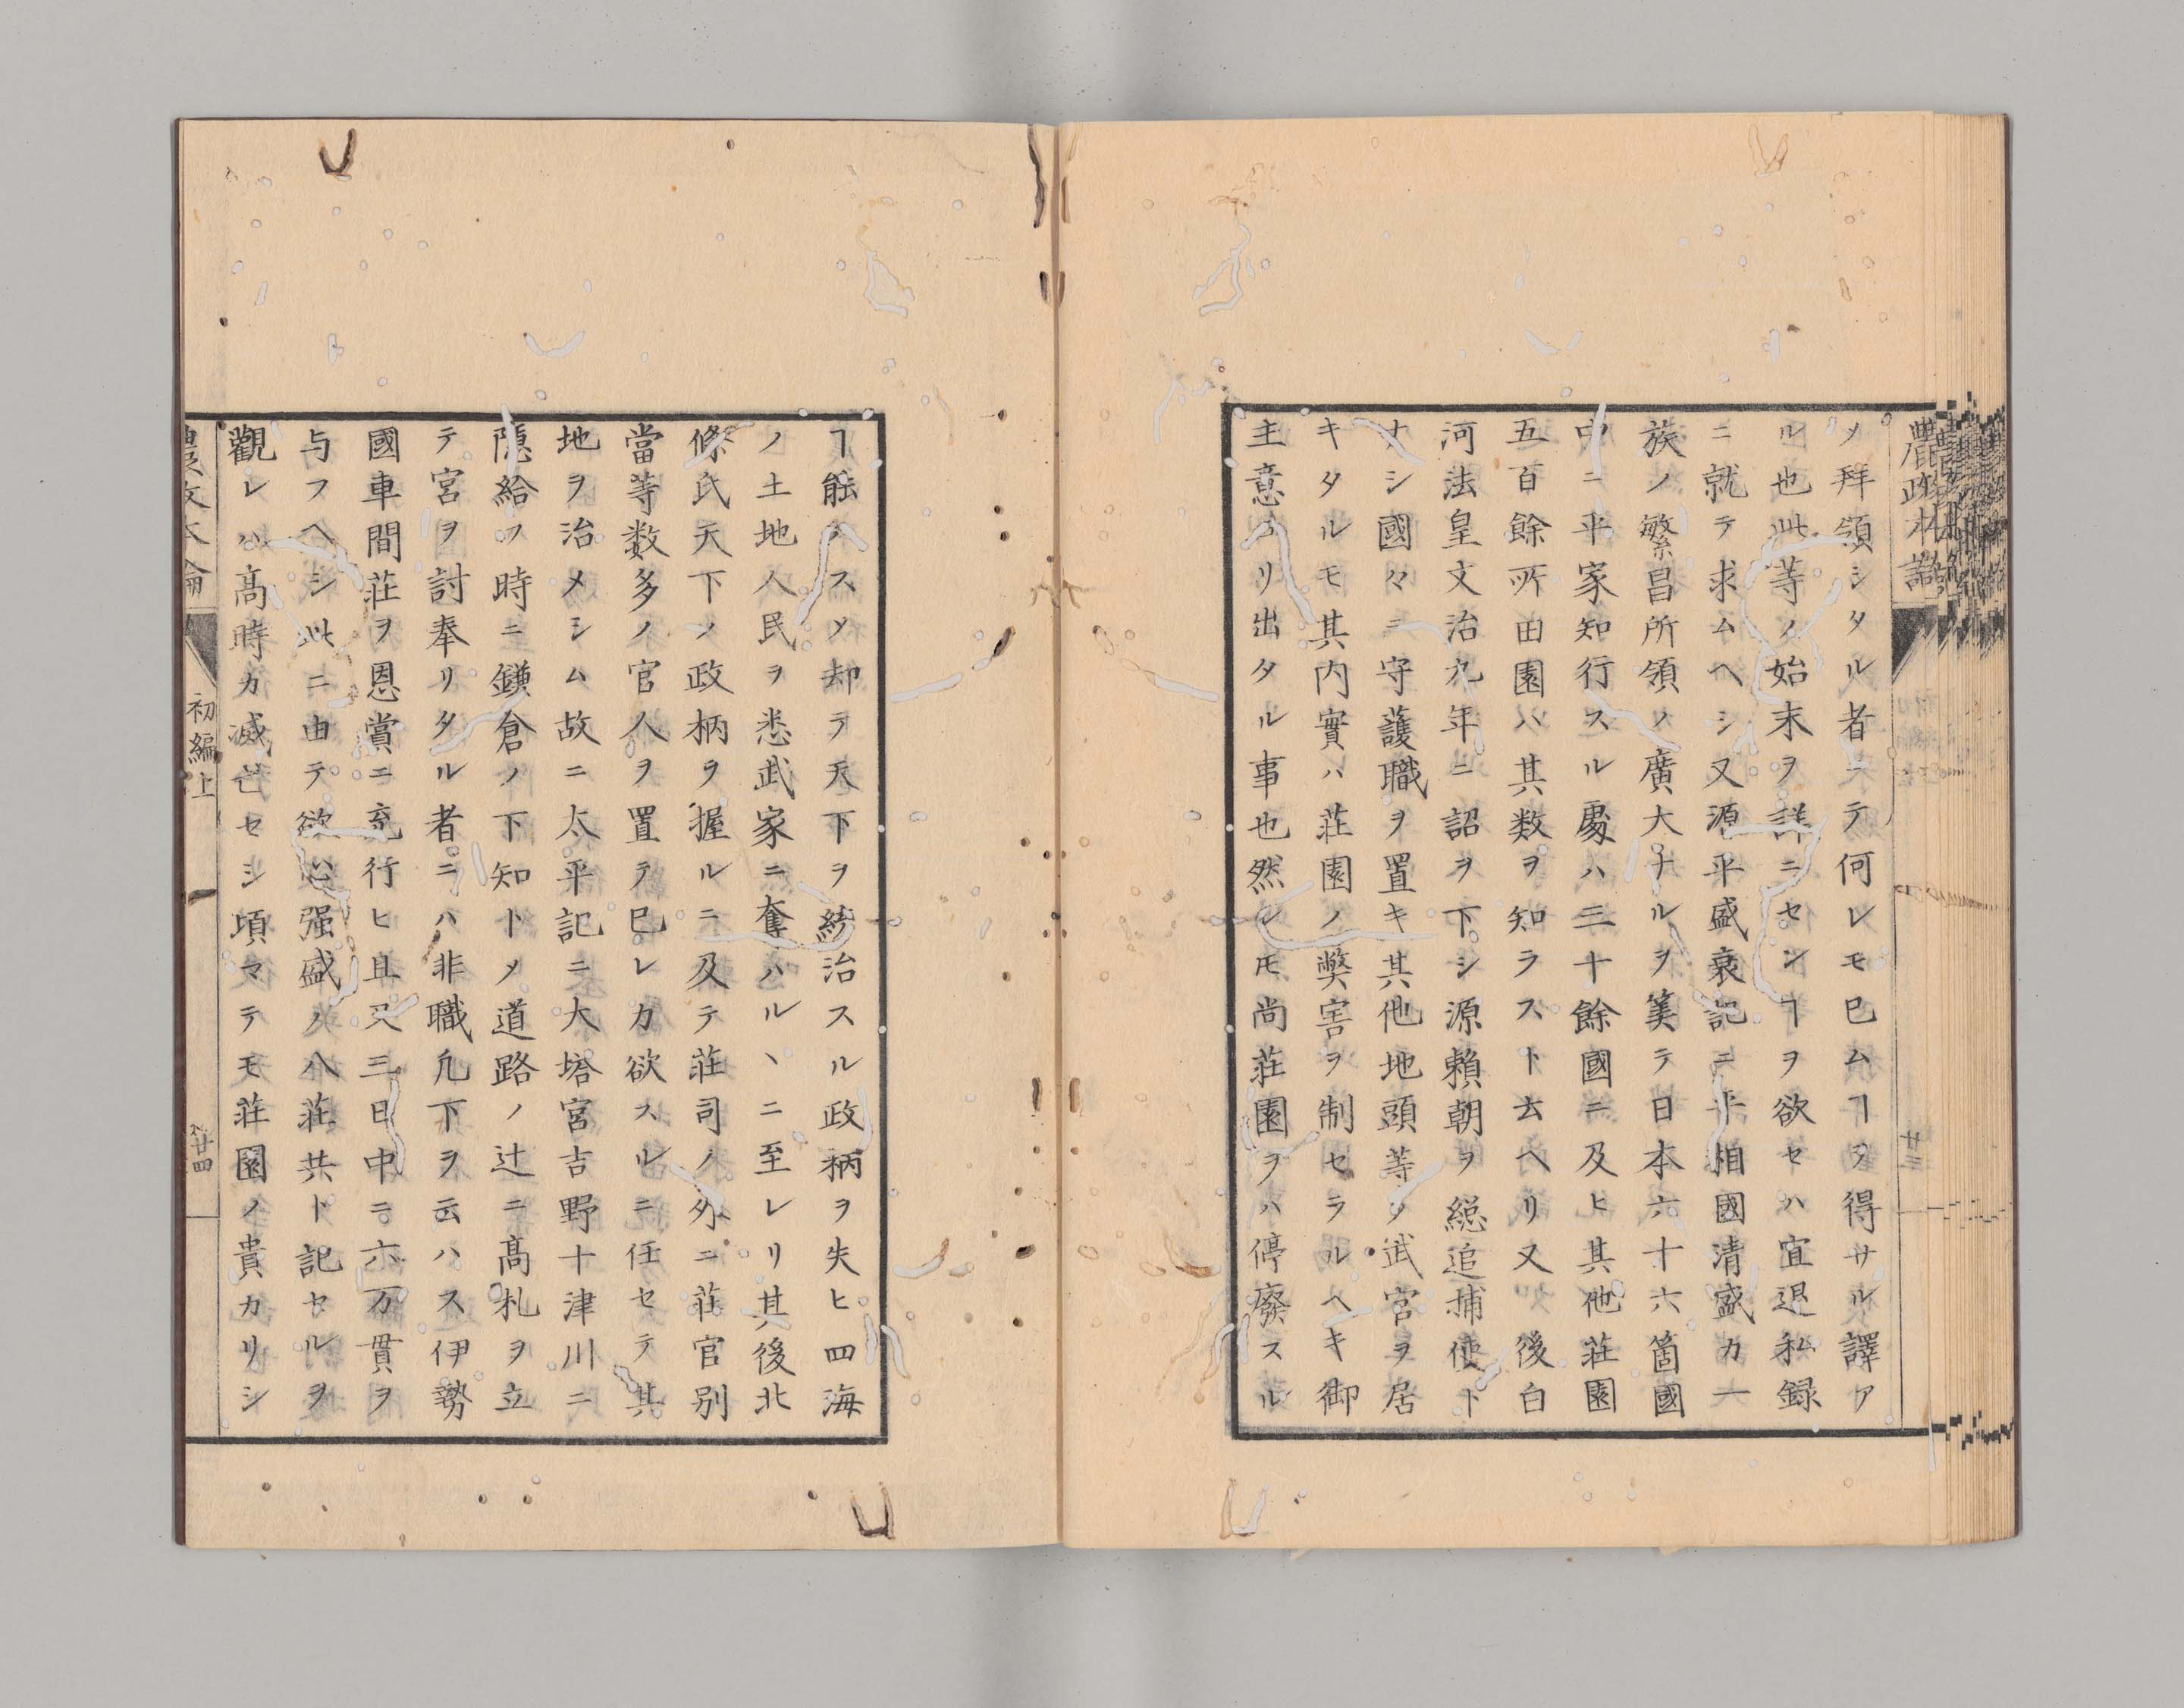 農政本論
ノ拜領シタル者ニテ何レモ已ムヿヲ得サル譯ア
ル也此等ノ始末ヲ詳ニセンヿヲ欲セハ宜退私録
ニ就テ求ムヘシ又源平盛衰記ニ平相國清盛カ一
族ノ繁昌所領ノ廣大ナルヲ筭テ日本六十六箇國
中ニ平家知行スル處ハ三十餘國ニ及ヒ其他荘園
五百餘所田園ハ其数ヲ知ラスト云ヘリ又後白
河法皇文治元年ニ詔ヲ下シ源賴朝ヲ総追捕使ト
ナシ國々ニ守護職ヲ置キ其他地頭等ノ武官ヲ居
キタルモ其内實ハ荘園ノ弊害ヲ制セラルヘキ御
主意ヨリ出タル事也然レ𪜈尚荘園ヲハ停廢スル
ヿ能ハスメ却テ天下ヲ統治スル政柄ヲ失ヒ四海
ノ土地人民ヲ悉武家ニ奪ハルヽニ至レリ其後北
條氏天下ノ政柄ヲ握ルニ及テ荘司ノ外ニ荘官別
當等数多ノ官人ヲ置テ己レカ欲スルニ任セテ其
地ヲ治メシム故ニ太平記ニ大塔宮吉野十津川ニ
隠給フ時ニ鎌倉ノ下知トメ道路ノ辻ニ髙札ヲ立
テ宮ヲ討奉リタル者ニハ非職凡下ヲ云ハス伊勢
國車間荘ヲ恩賞ニ充行ヒ且又三日中ニ六万貫ヲ
与フヘシ此ニ由テ欲心强盛ノ八荘共ト記セルヲ
觀レハ髙時カ滅亡セシ頃マテモ荘園ノ貴カリシ
農政本論
初編上
廿四